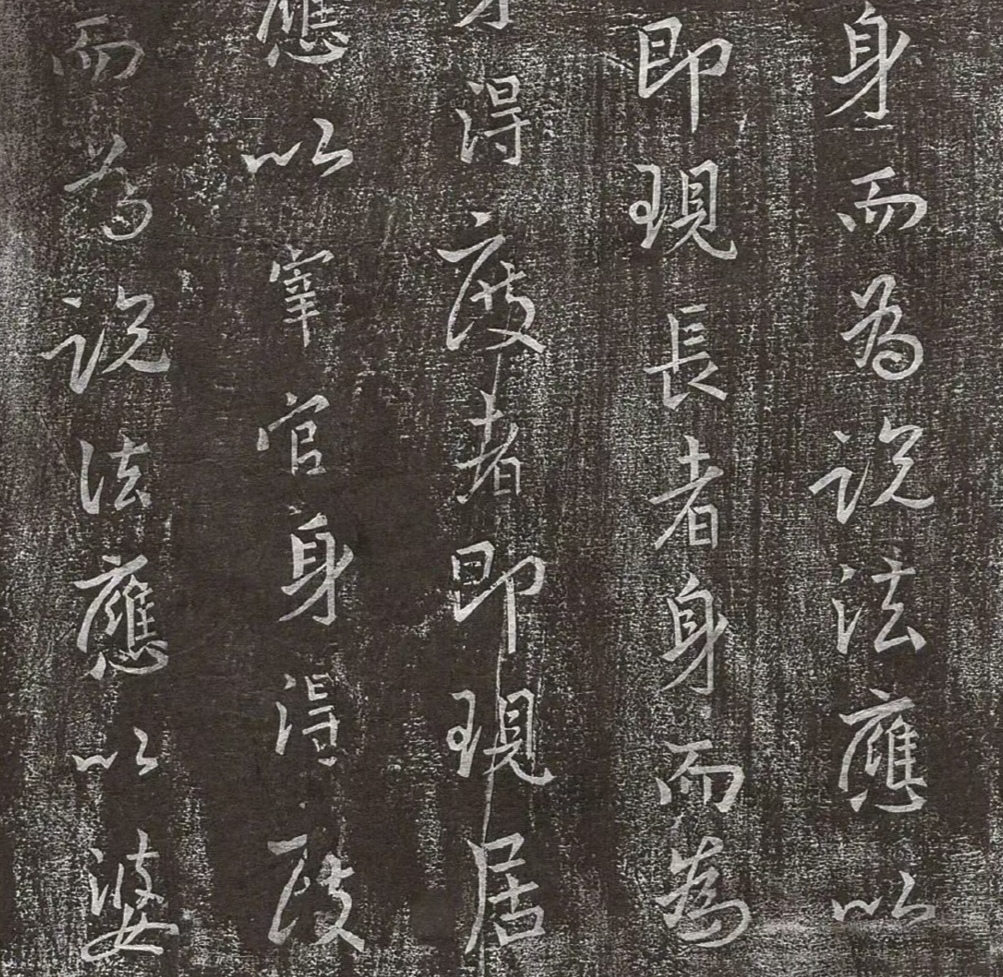 身而為説法應以
即現長者身而為
身得度者即現居
應以宰官身得度
而為説法應以婆